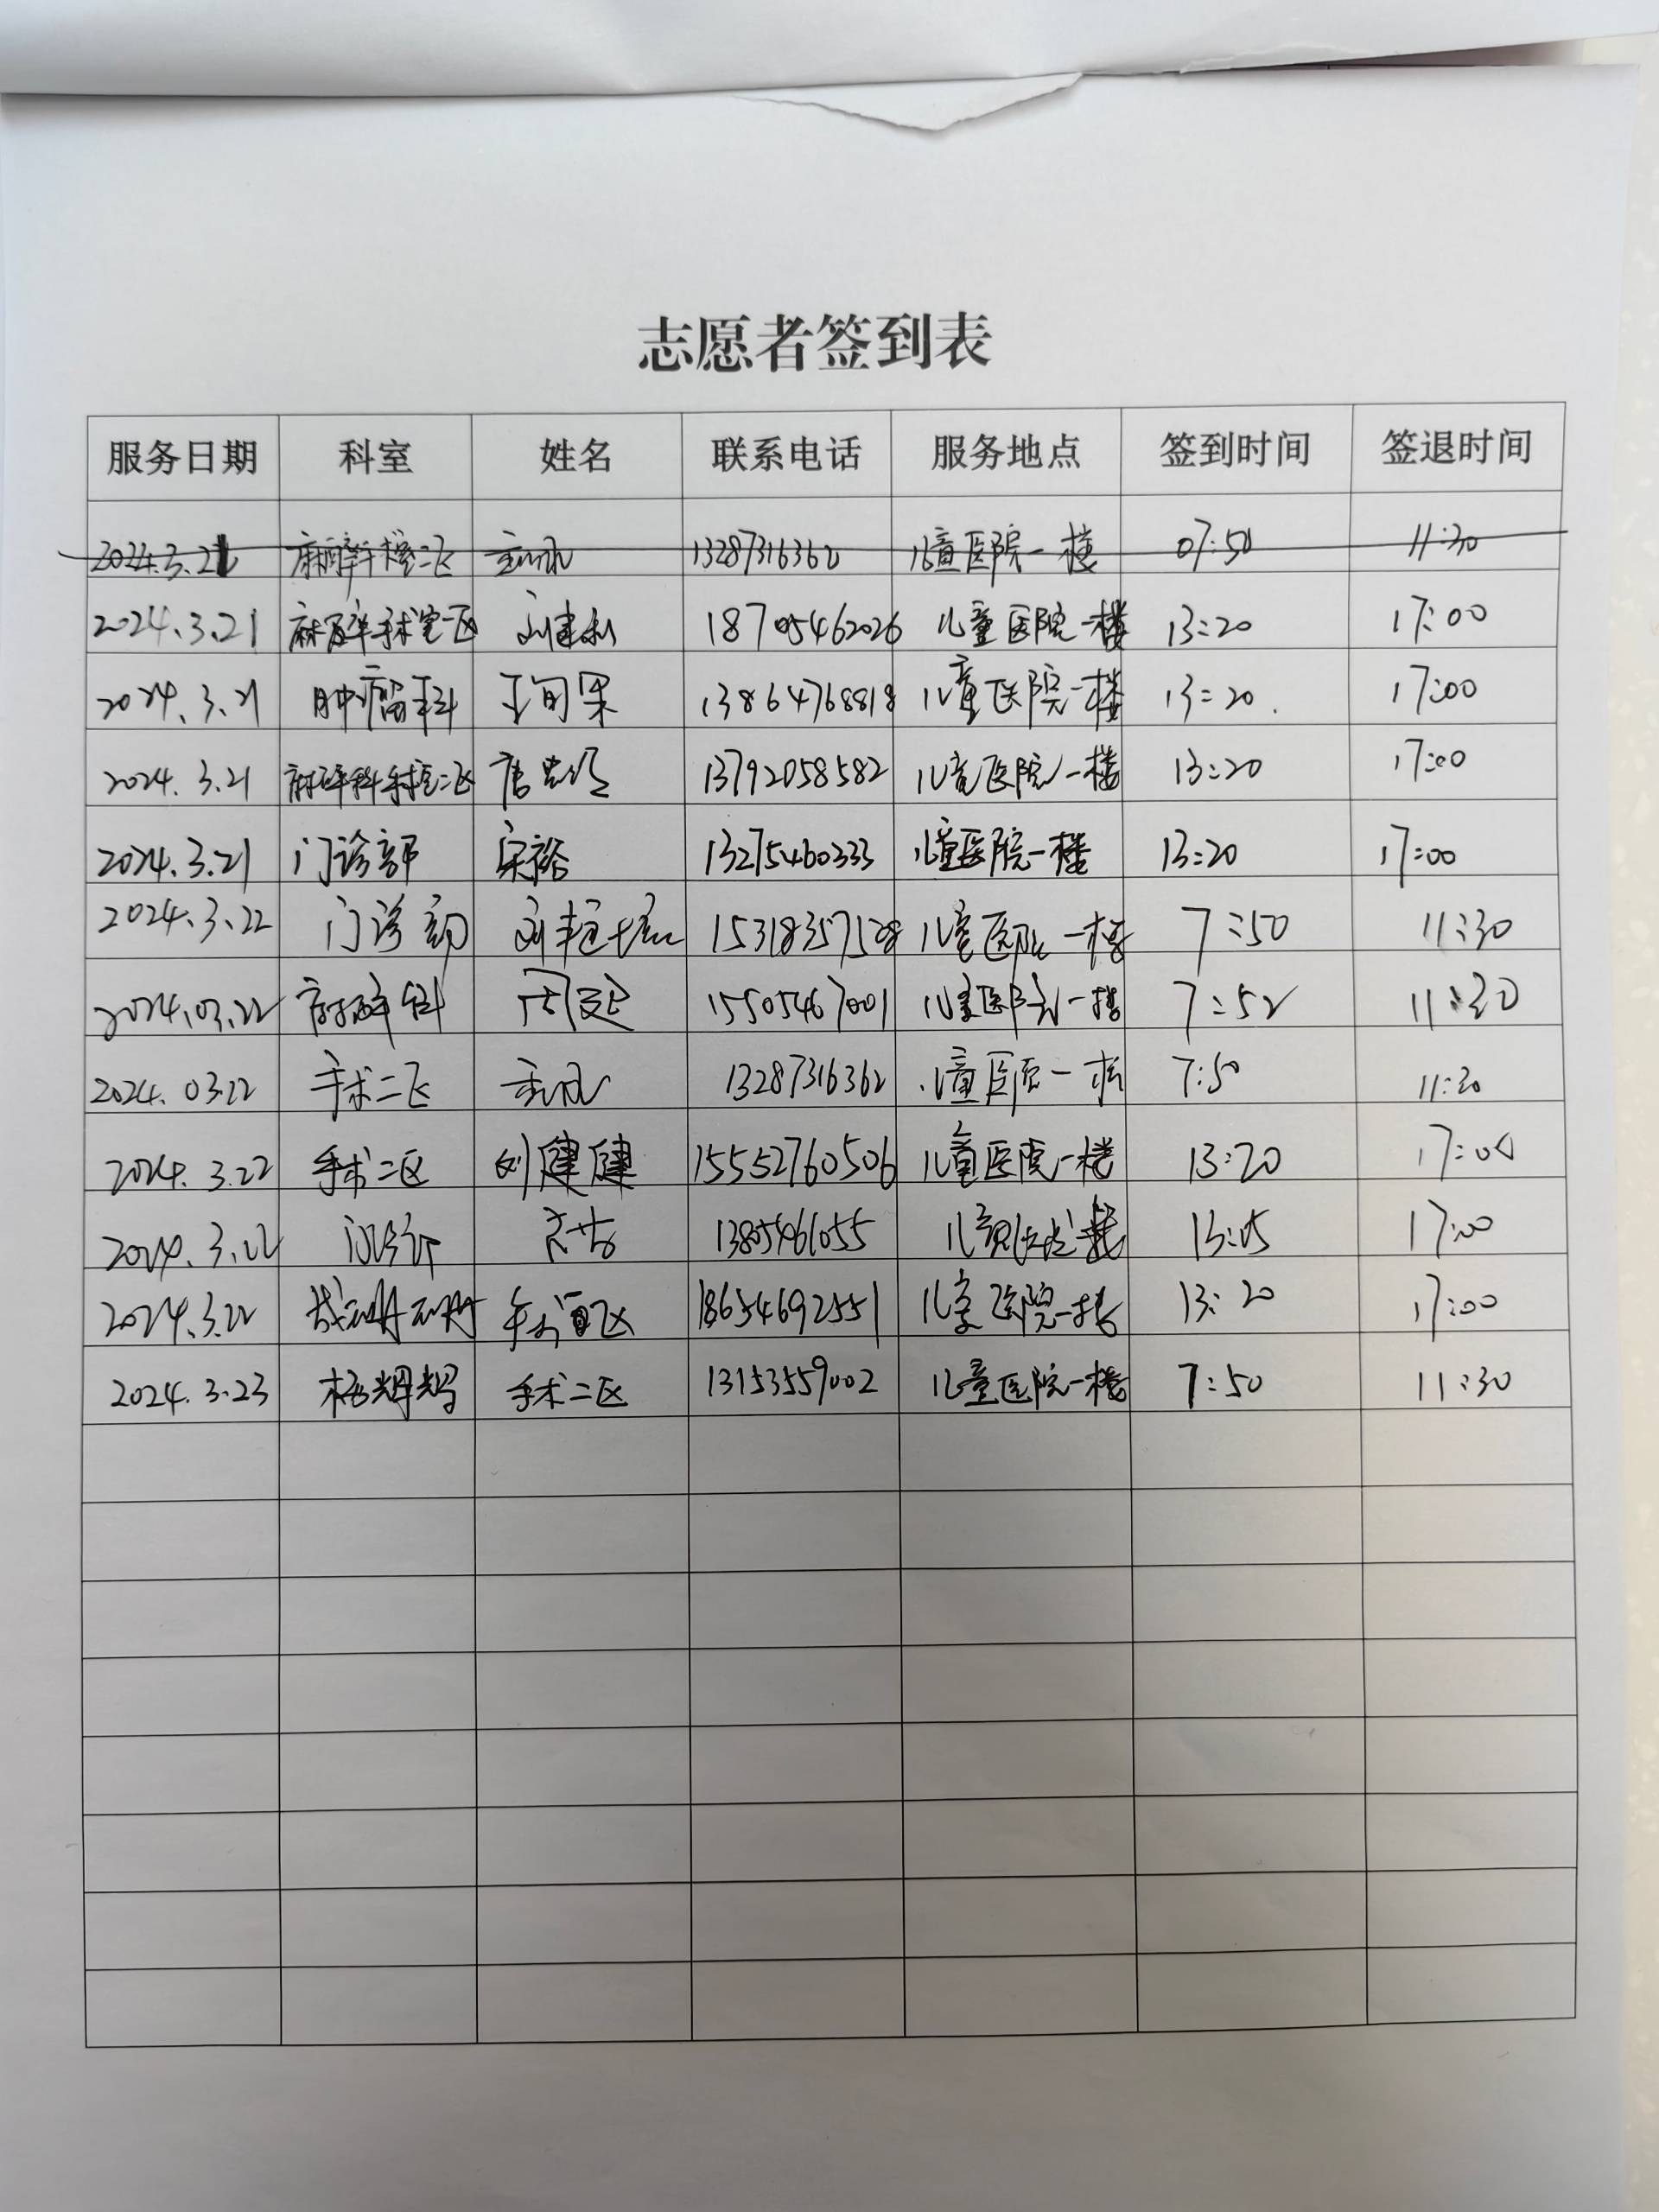 志愿者签到表
服务日期 科室 姓名 联系电话 服务地点 签到时间 签退时间
2024.3.21 13287316362 儿童医院一楼 07:50 11:30
2024.3.21 麻醉手术室一区 18705462026 儿童医院一楼 13:20 17:00
2024.3.21 肿瘤科 13864768818 儿童医院一楼 13:20 17:00
2024.3.21 麻醉科手术室二区 13792058582 儿童医院一楼 13:20 17:00
2024.3.21 门诊部 宋裕 13275460333 儿童医院一楼 13:20 17:00
2024.3.22 门诊部 15318357528 儿童医院一楼 7:50 11:30
2024.03.22 麻醉科 15505467001 儿童医院一楼 7:52 11:30
2024.03.22 手术二区 13287316362 儿童医院一楼 7:50 11:30
2024.3.22 手术二区 刘健健 15552760506 儿童医院一楼 13:20 17:00
2024.3.22 门诊 13805461055 13:15 17:00
2024.3.22 18654692551 儿童医院一楼 13:20 17:00
2024.3.23 杨辉辉 手术二区 13153559002 儿童医院一楼 7:50 11:30